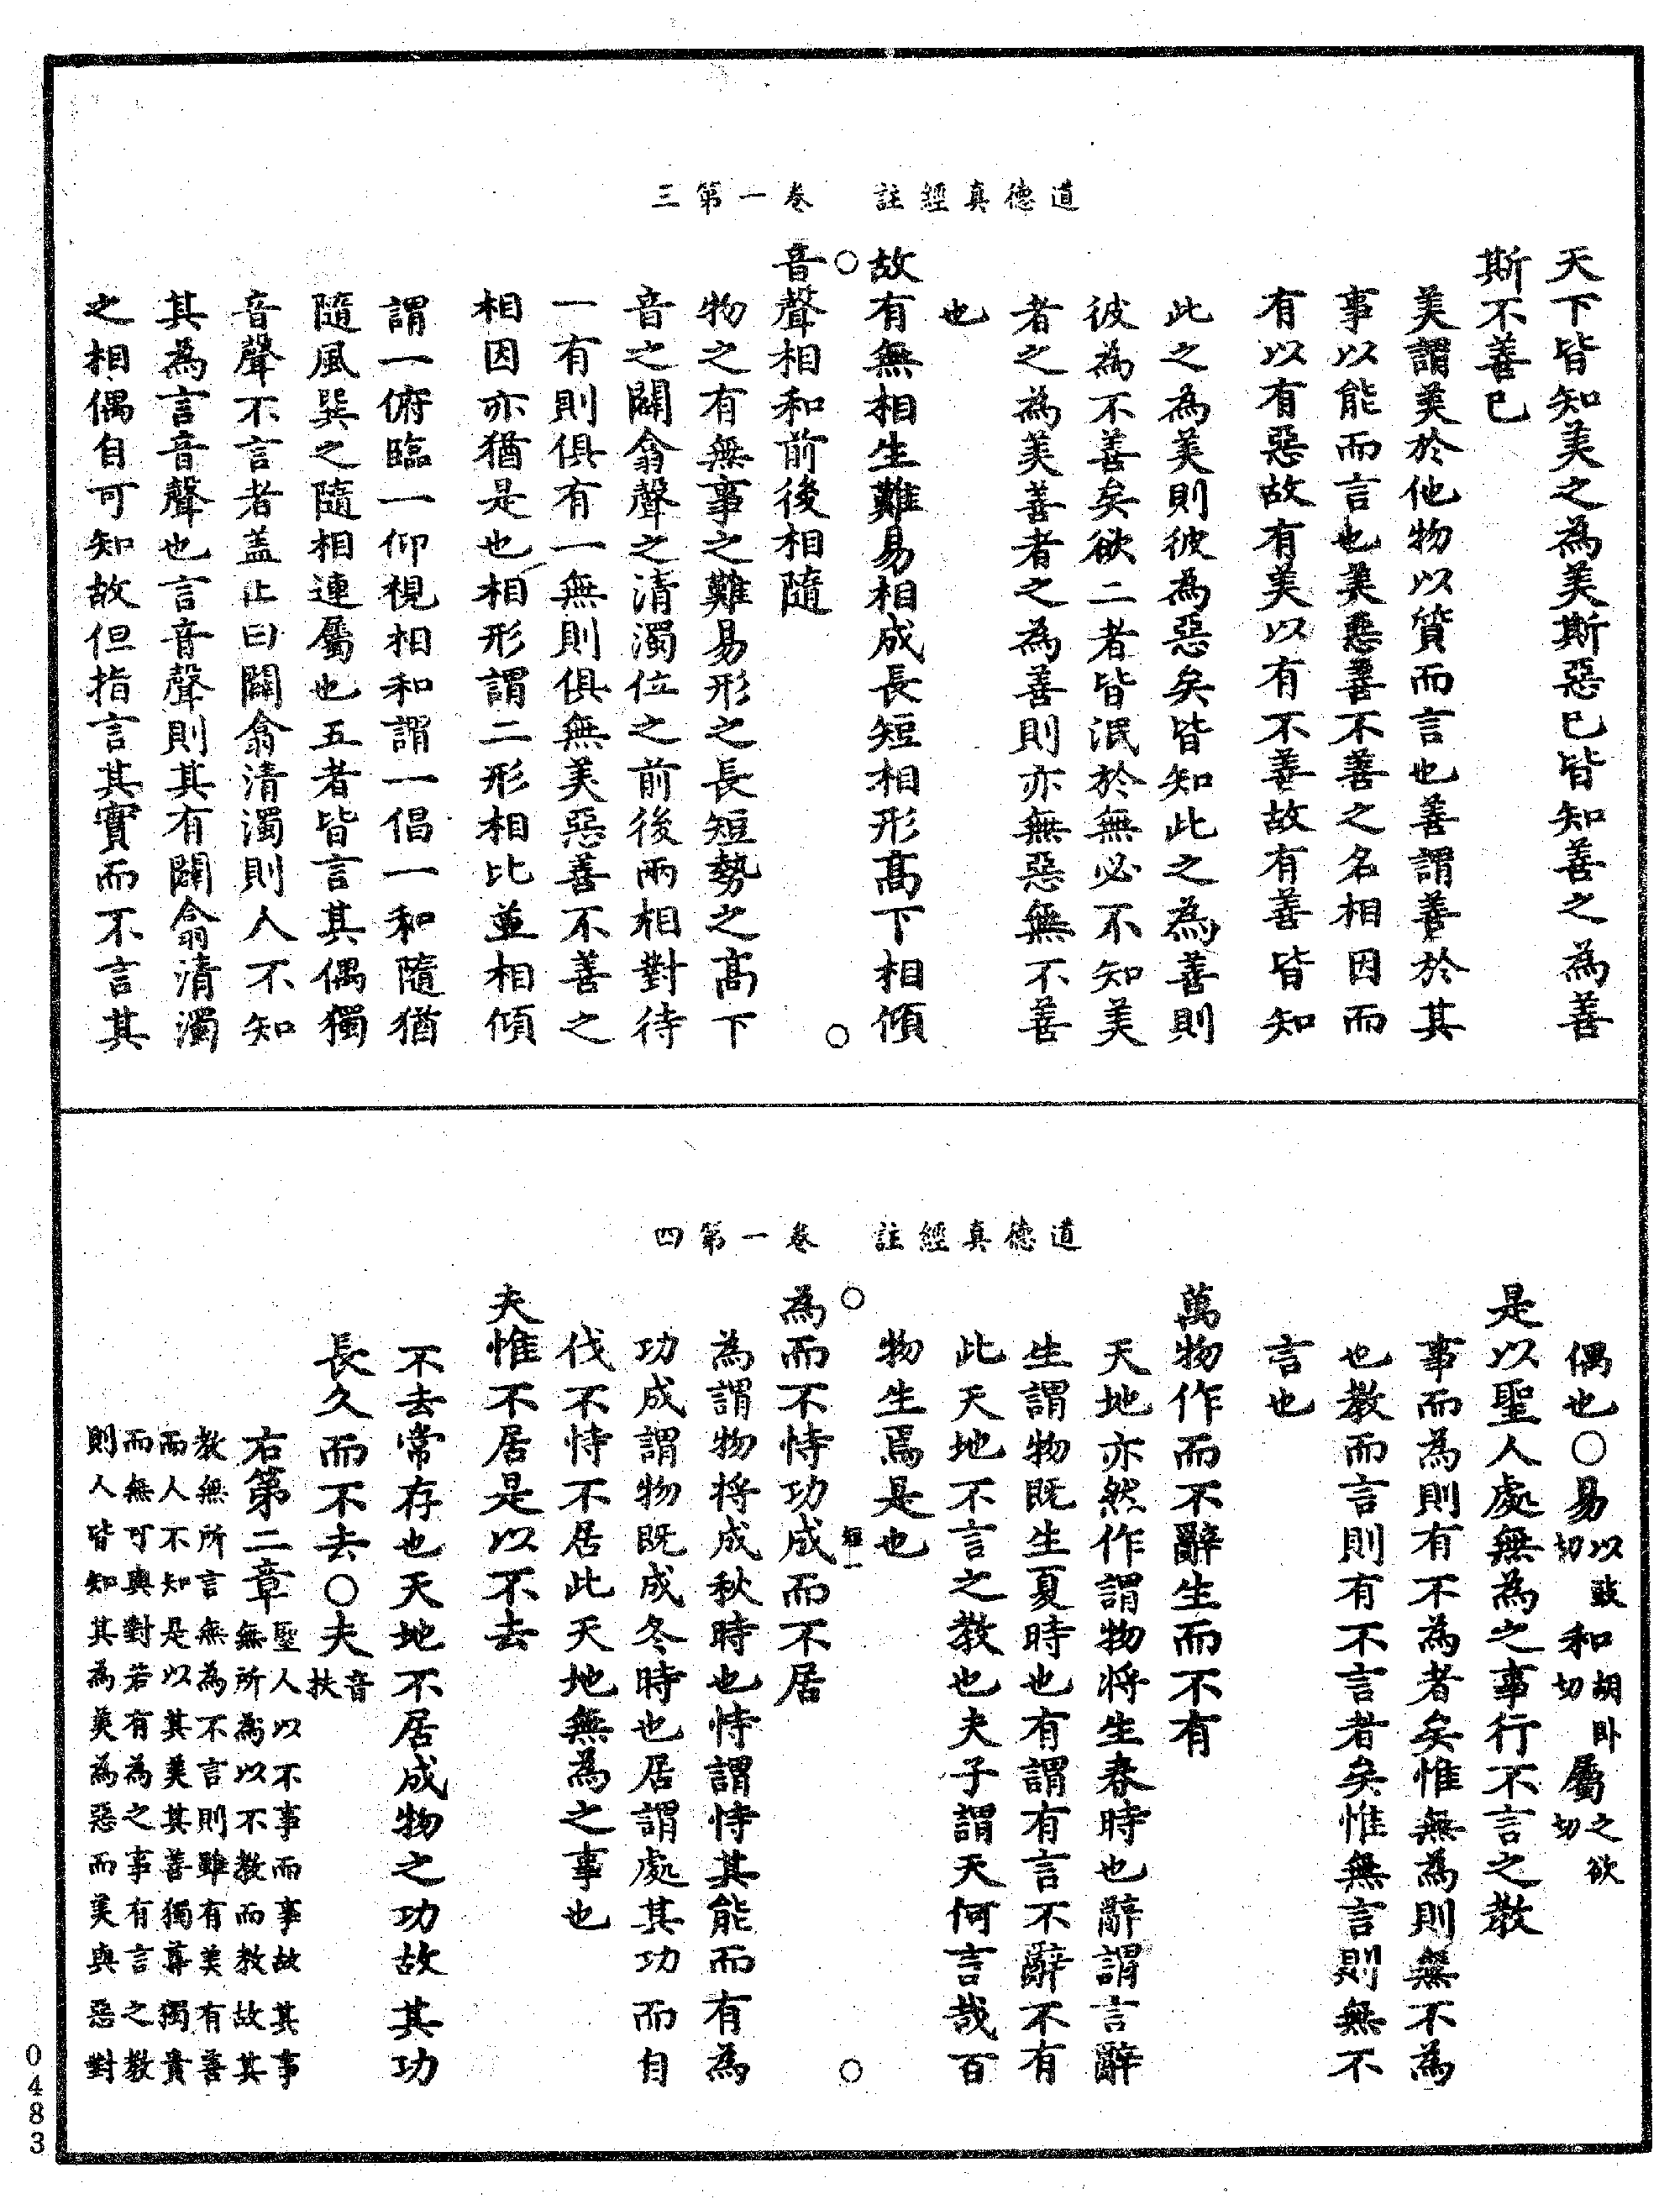 道德真經註　卷一第三
天下皆知美之為美斯惡已皆知善之為善
斯不善已
美謂美於他物以質而言也善謂善於其
事以能而言也美惡善不善之名相因而
有以有惡故有美以有不善故有善皆知
此之為美則彼為惡矣皆知此之為善則
彼為不善矣欲二者皆泯於無必不知美
者之為美善者之為善則亦無惡無不善
也
故有無相生難易相成長短相形高下相傾
○　○
音聲相和前後相隨
物之有無事之難易形之長短勢之高下
音之闢翕聲之清濁位之前後兩相對待
一有則俱有一無則俱無美惡善不善之
相因亦猶是也相形謂二形相比並相傾
謂一俯臨一仰視相和謂一倡一和隨猶
隨風巽之隨相連屬也五者皆言其偶獨
音聲不言者盖止曰闢翕清濁則人不知
其為言音聲也言音聲則其有闢翕清濁
之相偶自可知故但指言其實而不言其
道德真經註　卷一第四
偶也○易以豉切和胡卧切屬之欲切
是以聖人處無為之事行不言之教
事而為則有不為者矣惟無為則無不為
也教而言則有不言者矣惟無言則無不
言也
萬物作而不辭生而不有
天地亦然作謂物將生春時也辭謂言辭
生謂物既生夏時也有謂有言不辭不有
此天地不言之教也夫子謂天何言哉百
物生焉是也
○　○
為而不恃功成而不居
為謂物将成秋時也恃謂恃其能而有為
功成謂物既成冬時也居謂處其功而自
伐不恃不居此天地無為之事也
夫惟不居是以不去
不去常存也天地不居成物之功故其功
長久而不去○夫音扶
右第二章聖人以不事而事故其事
無所為以不教而教故其
教無所言無為不言則雖有美有善
而人不知是以其美其善獨尊獨貴
而無可與對若有為之事有言之教
則人皆知其為美為惡而美與惡對
0483